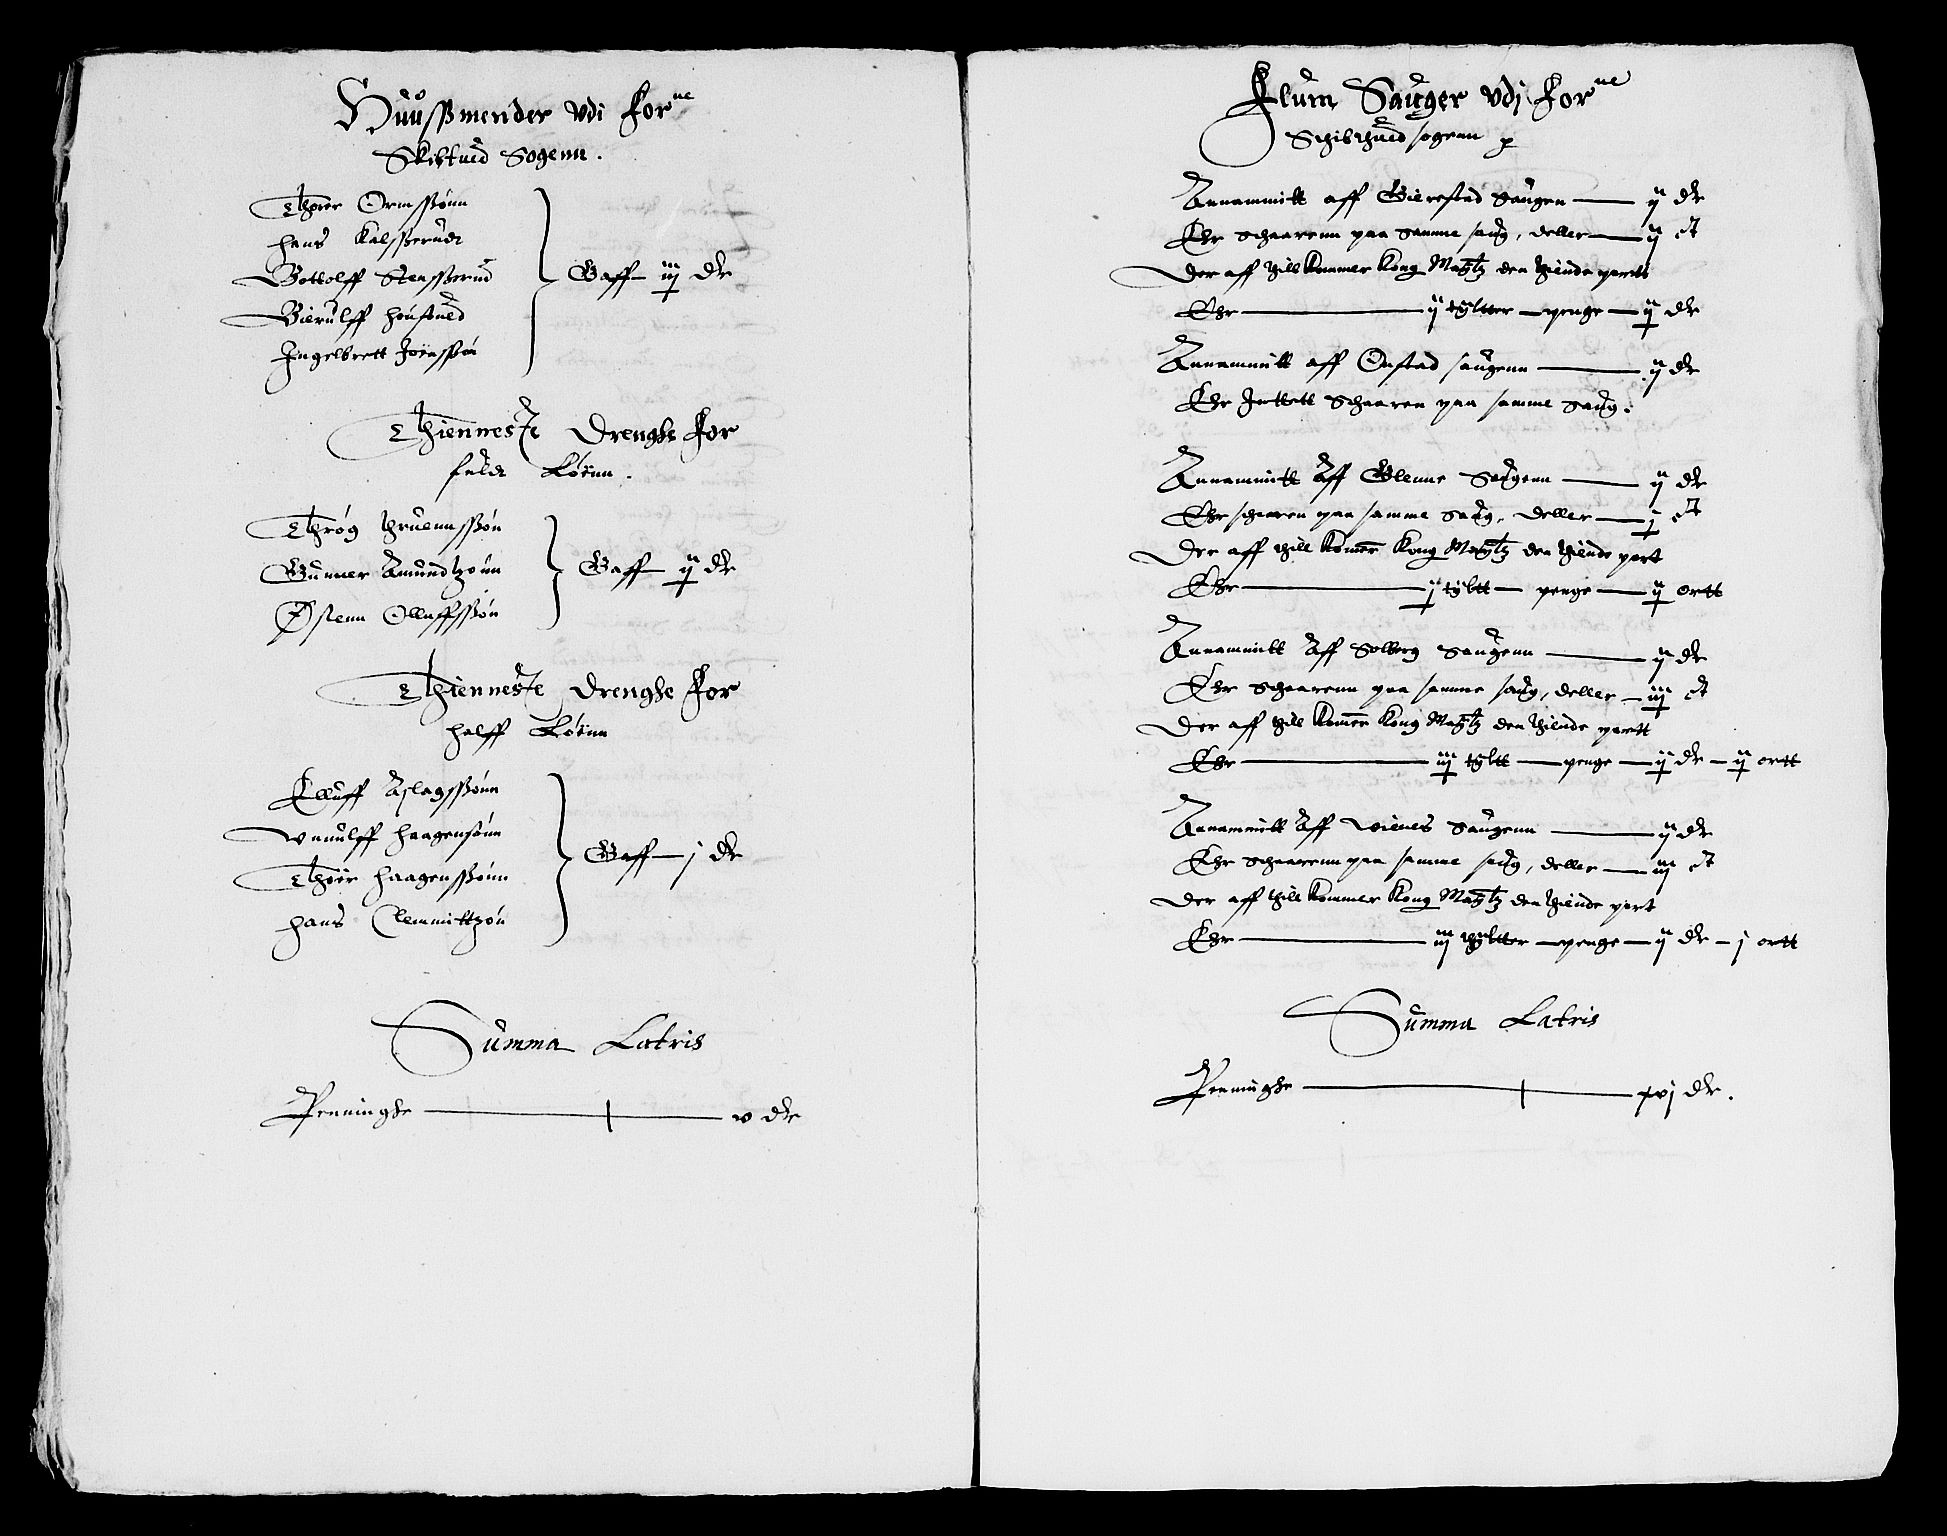 Huusmender vdi for ne
Skibtued Sogenn.
Thorer Ormssønn
hans Kalsserudt
Bottolff Stensserud
Bierulff housoued
Ingelbrett Joenssøn
Gaff iij dr
Thienneste Drenghe for
fuldt Lønn.
Thrög Thruennssøn
Gunner Amundtzønn
Østenn Olluffssøn
Gaff ij dr
Thienneste drenghe for
halff Lønn
Elluff Aslagssønn
wnnulff haagensønn
Thoer haagenssønn
hans Clemmittzøn
Gaff j dr
Summa Latris
Penninghe v dr
Flum Sauger vdj for ne
Schibthued sogenn
Annammitt aff Bierestad Saugen ij dr
Ehr schaarenn paa samme saug, deller ij ct
der aff thill kommer Kong Maytz den thiende partt
Ehr ij tyltter penge ij dr
Annammitt aff Onstad saugenn ij dr
Ehr Inttett schaaren paa samme saug.
Annammitt Aff Glenne Saugenn ij dr
Ehr schaaren paa samme saug, deller j ct
Der aff thill komer Kong Maytz den thiende part
Ehr j tyltt penge ij ortt
Annammitt Aff Solberg Saugenn ij dr
Ehr schaarenn paa samme saug, deller iij ct
Der aff thill komer Kong Maytz den thiende partt
Ehr iij tyltt penge ij dr ij ortt
Annammitt Aff wienes Saugenn ij dr
Ehr schaarenn paa samme saug, deller iij ct
Der aff thill kommer Kong Maytz den thiende part
Ehr iij thyltter penge ij dr j ortt
Summa Latris
Penninghe xvj dr.